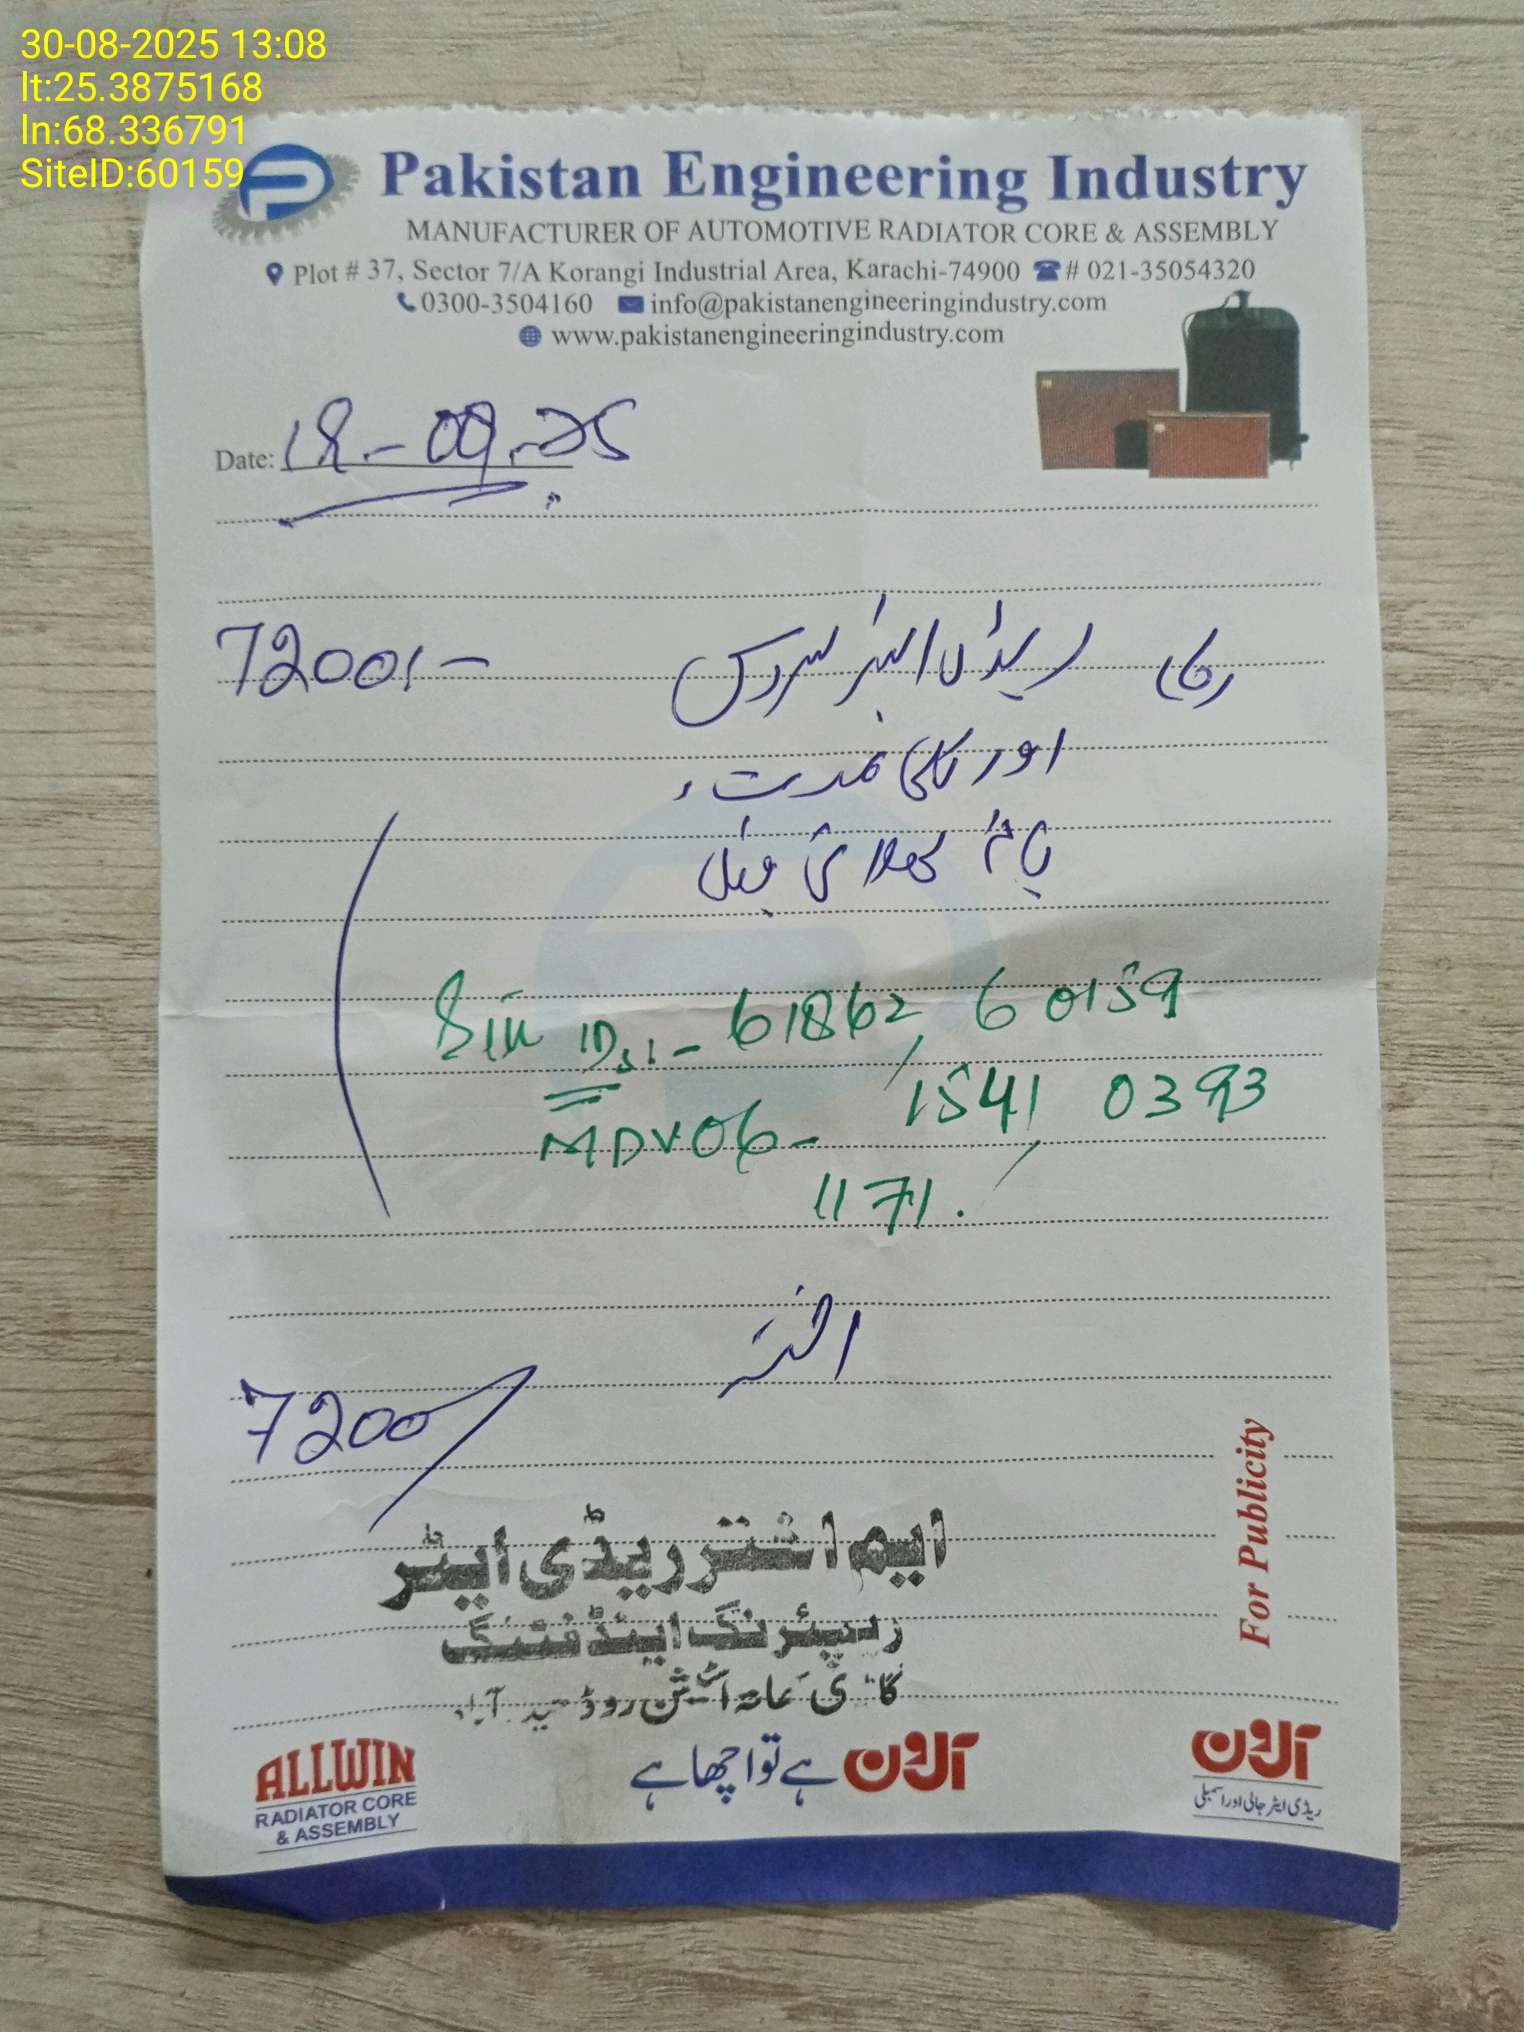 30-08-2025 13:08
lt:25.3875168
ln:68.336791
SiteID:60159
Pakistan Engineering Industry
MANUFACTURER OF AUTOMOTIVE RADIATOR CORE & ASSEMBLY
Plot # 37, Sector 7/A Korangi Industrial Area, Karachi-74900 # 021-35054320
0300-3504160 info@pakistanengineeringindustry.com
www.pakistanengineeringindustry.com
Date: 18-09-25
ریڈی ایٹر سروس 7200/-
اور
61862, 60159
MDV06- 1541 0393
1171.
7200/
ایم اشتر ریڈی ایٹر
ریپئرنگ اینڈ فٹنگ
روڈ
For Publicity
آلون ہے تو اچھا ہے
ALLWIN
RADIATOR CORE
& ASSEMBLY
آلون
ریڈی ایٹر جالی اور اسمبلی